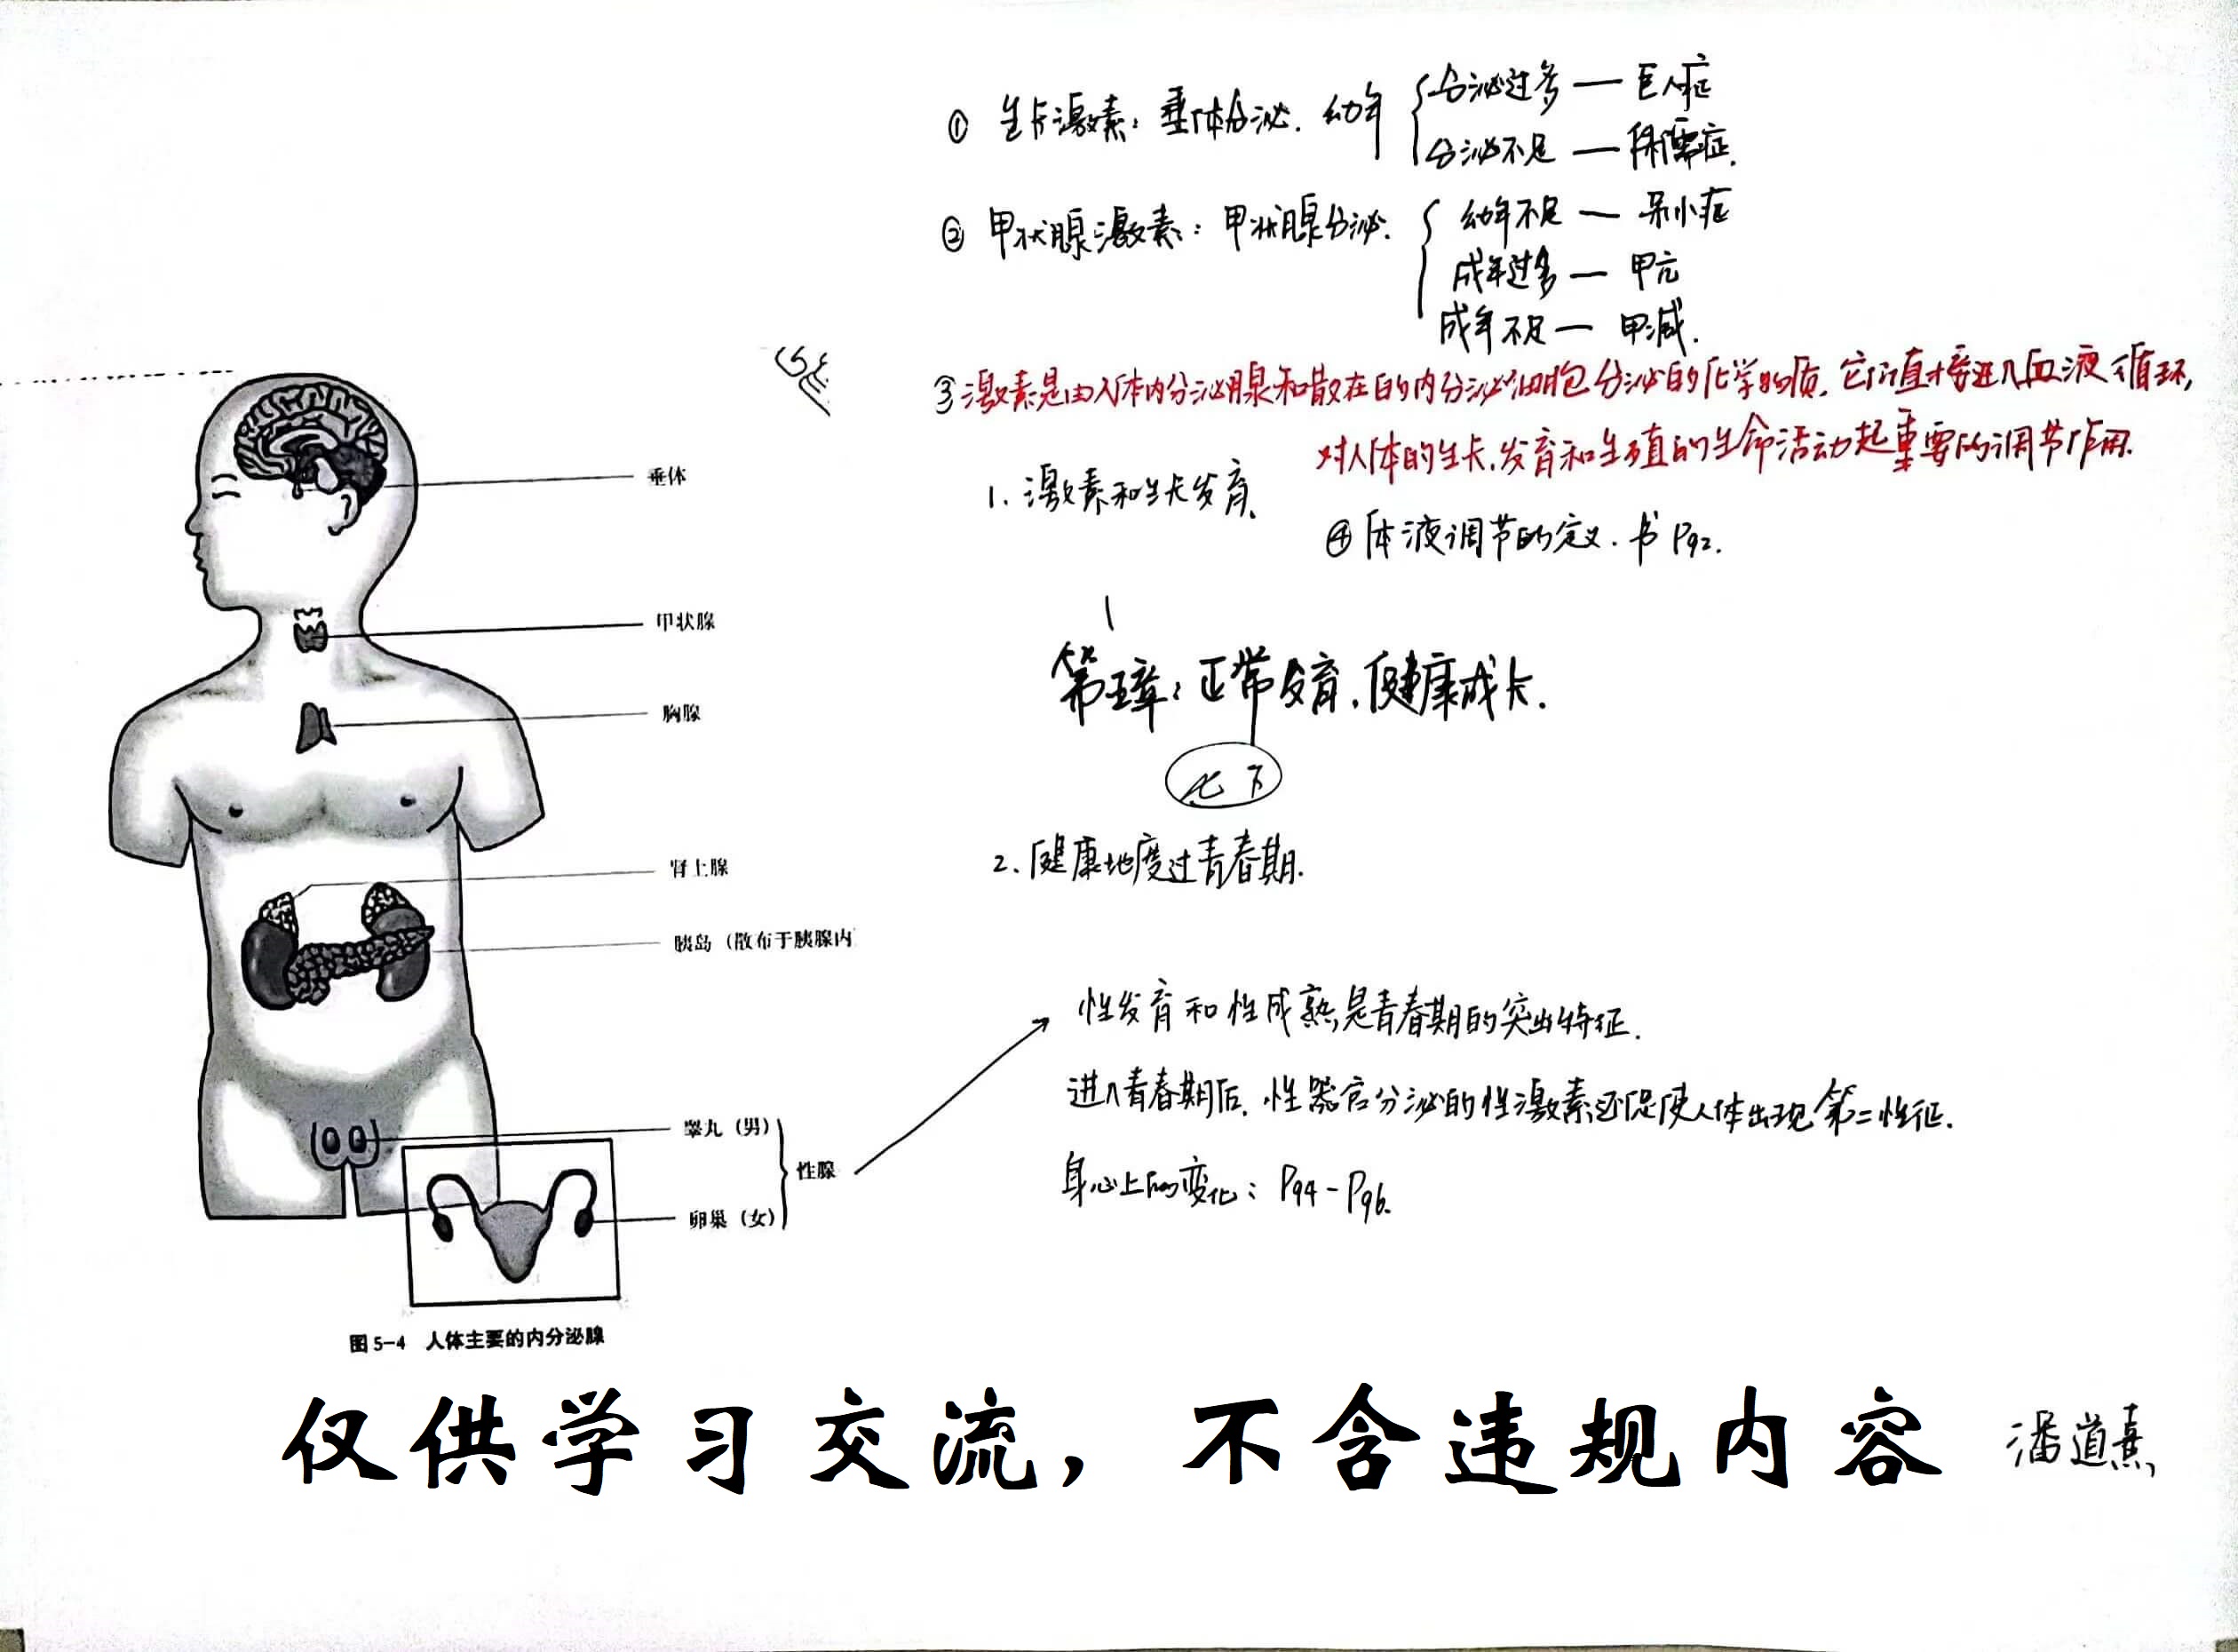 ① 生长激素：垂体分泌．幼年
分泌过多 — 巨人症
分泌不足 — 侏儒症.
② 甲状腺激素：甲状腺分泌．
幼年不足 — 呆小症
成年过多 — 甲亢
成年不足 — 甲减．
③ 激素是由人体内分泌腺和散在的内分泌细胞分泌的化学物质．它们直接进入血液循环，
对人体的生长、发育和生殖的生命活动起重要的调节作用．
1. 激素和生长发育．
④ 体液调节的定义．书 P92.
第五章：正常发育，健康成长．
七下
2. 健康地度过青春期．
性发育和性成熟是青春期的突出特征．
进入青春期后．性器官分泌的性激素还促使人体出现第二性征．
身心上的变化：P94-P96.
垂体
甲状腺
胸腺
肾上腺
胰岛（散布于胰腺内
睾丸（男）
性腺
卵巢（女）
图 5-4 人体主要的内分泌腺
仅供学习交流，不含违规内容
潘道熹